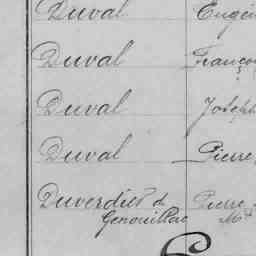 Duval Eugén
Duval Franço
Duval Joseph
Duval Pierre
Duverdier de Pierre
Genouillac M